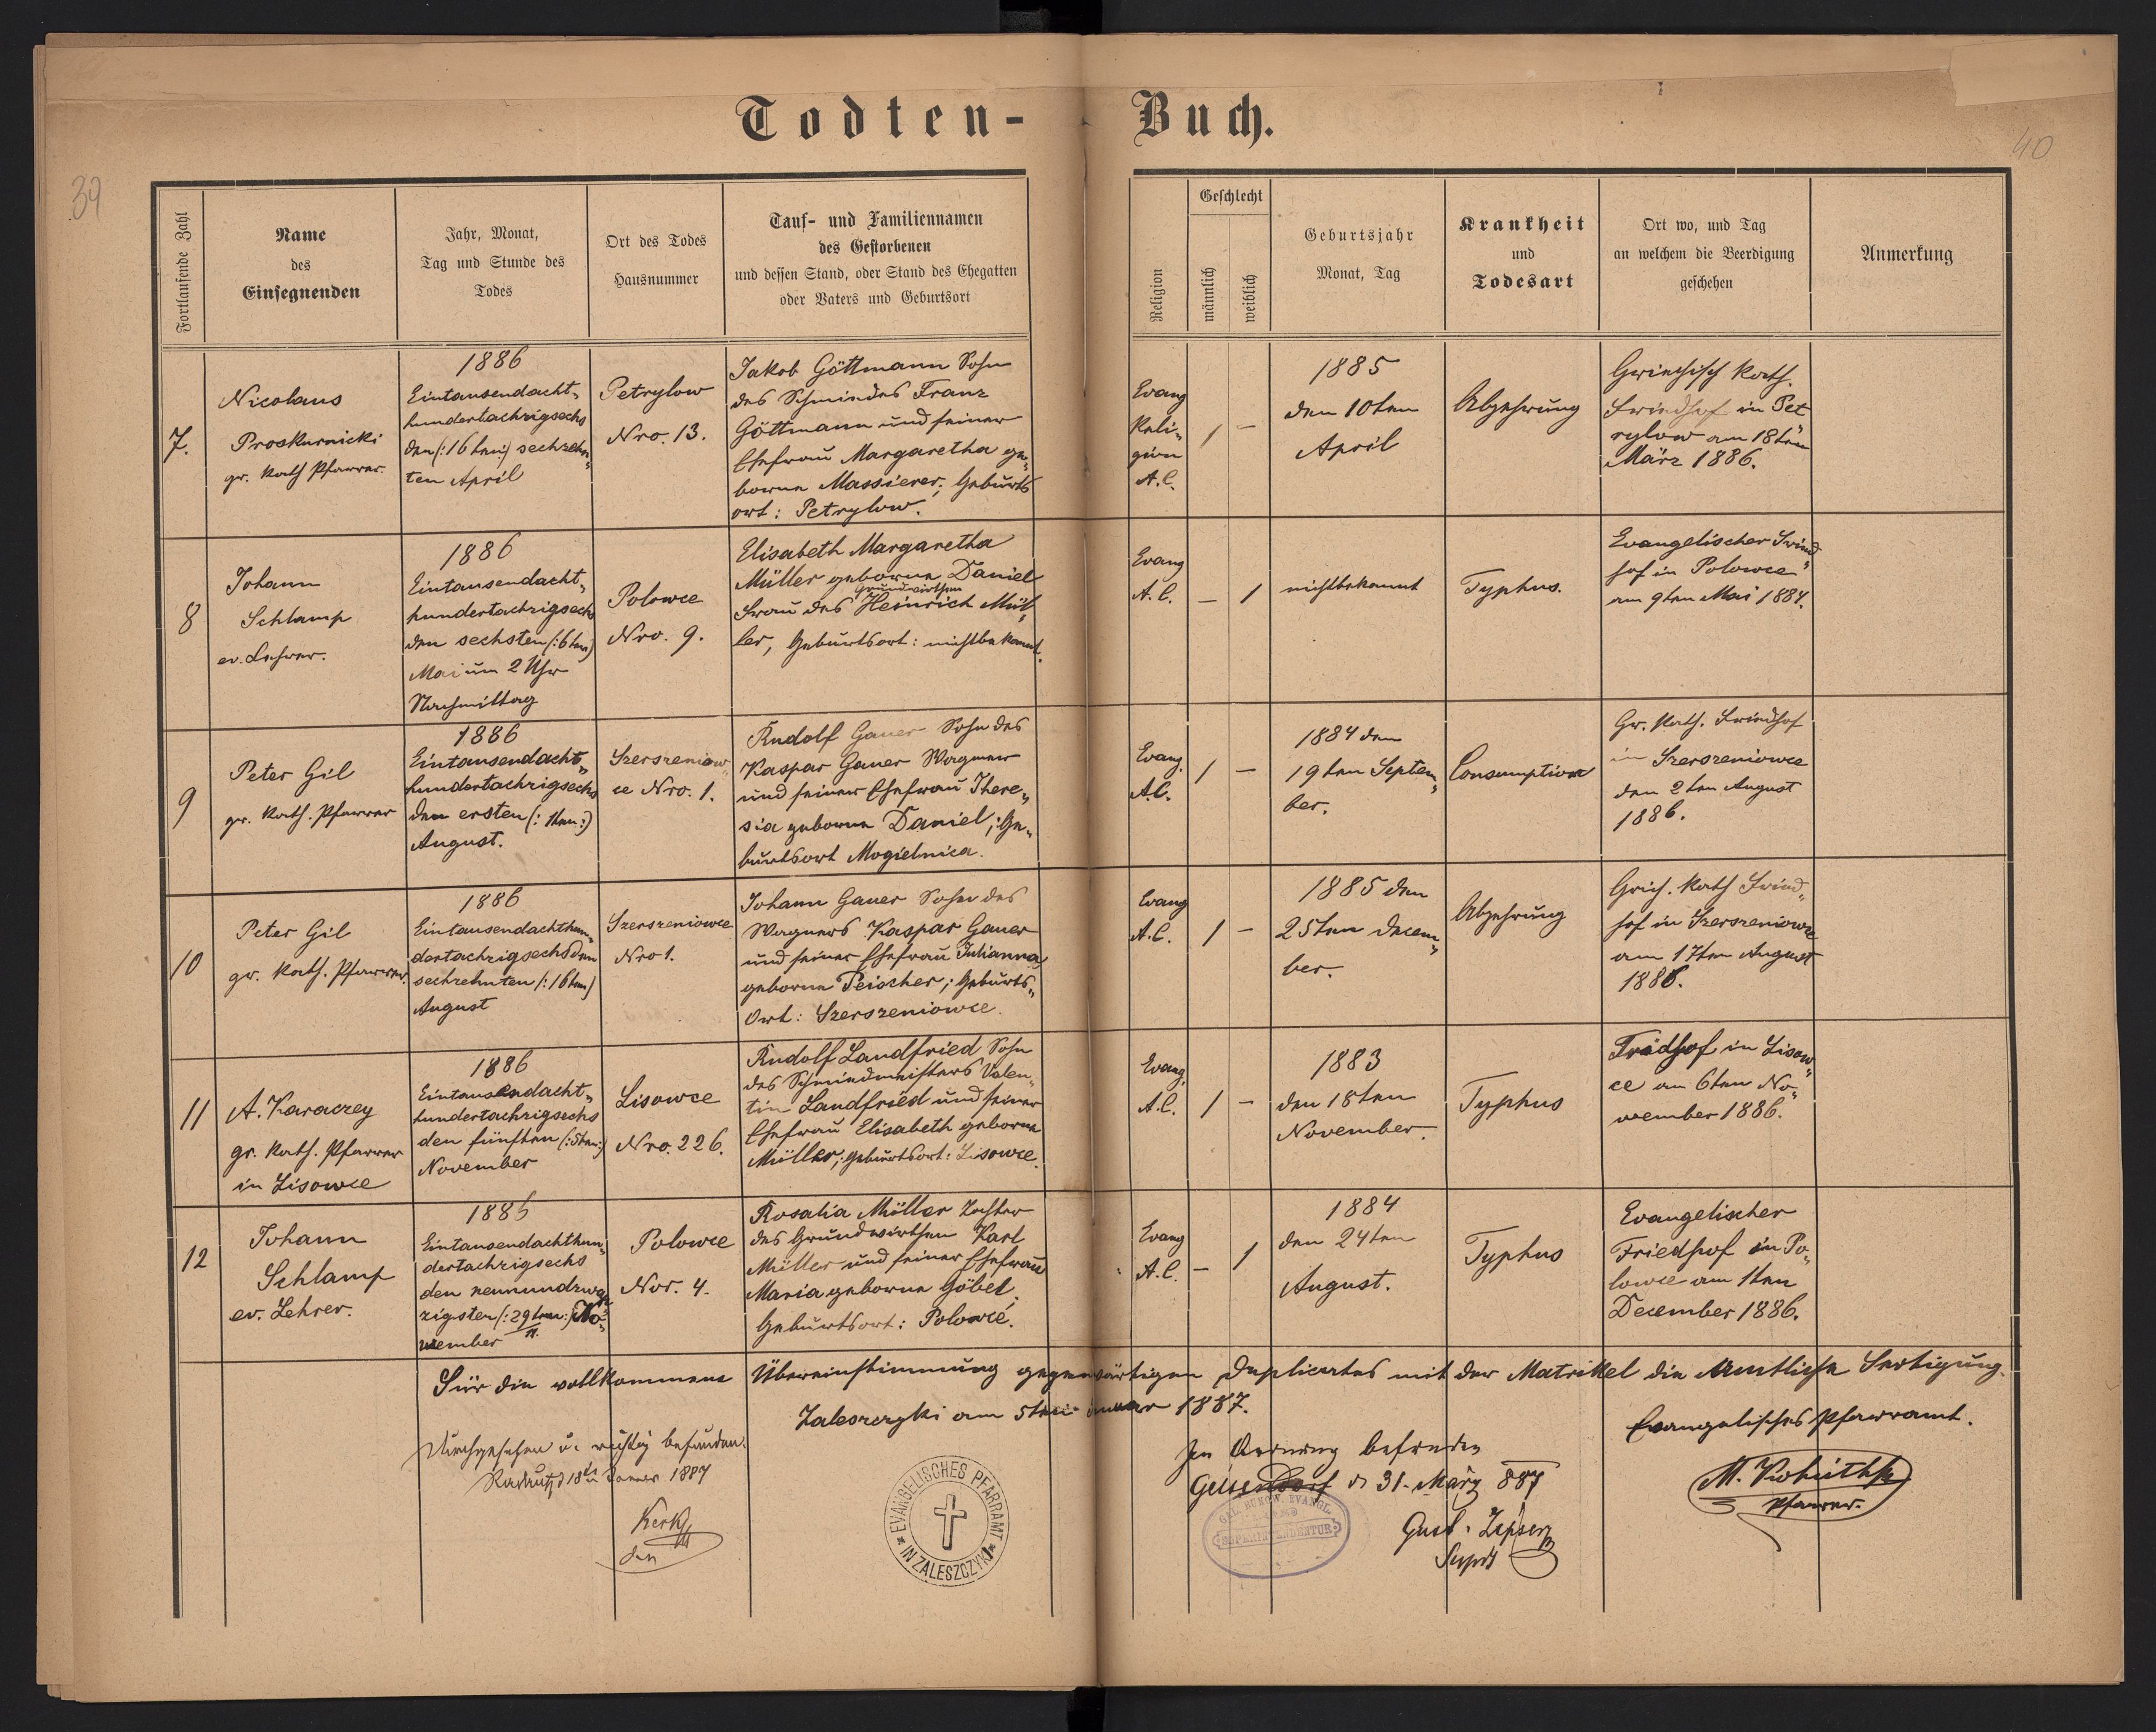 Todten-
Buch.
39
40
Fortlaufende Zahl
Name
des
Einsegnenden
Jahr, Monat,
Tag und Stunde des
Todes
Ort des Todes
Hausnummer
Tauf- und Familiennamen
des Gestorbenen
und dessen Stand, oder Stand des Ehegatten
oder Vaters und Geburtsort
Religion
Geschlecht
männlich
weiblich
Geburtsjahr
Monat, Tag
Krankheit
und
Todesart
Ort wo, und Tag
an welchem die Beerdigung
geschehen
Anmerkung
7.
Nicolaus
Proskurnicki
gr. kath Pfarrer.
1886
Eintausendacht„
hundertachzigsechs
den (:16ten:) sechzehn„
ten April
Petrylow
Nro. 13.
Jakob Göttmann Sohn
des Schmiedes Franz
Göttmann und seiner
Ehefrau Margaretha ge„
borne Massierer; Geburts
ort: Petrylow.
Evang
Reli„
gion
A.C.
1
—
1885
den 10ten
April
Abzehrung
Griechisch kath.
Friedhof in Pet
rylow am 18ten
März 1886.
8
Johann
Schlamp
ev. Lehrer.
1886
Eintausendacht„
hundertachzigsechs
den sechsten (:6ten)
Mai um 2 Uhr
Nachmittag
Polowce
Nro. 9.
Elisabeth Margaretha
Müller geborne Daniel
Grundwirthen
Frau des Heinrich Mül„
ler, Geburtsort: nichtbekannt.
Evang
A.C.
—
1
nichtbekannt
Typhus.
Evangelischer Fried„
hof in Polowce
am 9ten Mai 1884.
9
Peter Gil
gr. kath. Pfarrer
1886
Eintausendacht„
hundertachzigsechs
den ersten (:1ten:)
August.
Szerszeniow„
ce Nro. 1.
Rudolf Gauer Sohn des
Kaspar Gauer Wagner
und seiner Ehefrau There„
sia geborne Daniel; Ge„
burtsort Mogielnica.
Evang.
A.C.
1
—
1884 den
19ten Septem„
ber.
Consumption
Gr. kath. Friedhof
in Szerszeniowce
den 2ten August
1886.
10
Peter Gil
gr. kath. Pfarrer.
1886
Eintausendachthun„
dertachzigsechs den
sechzehnten (:16ten)
August
Szerszeniowce
Nro 1.
Johann Gauer Sohn des
Wagners Kaspar Gauer
und seiner Ehefrau Julianna
geborne Peischer; Geburts„
Ort: Szerszeniowce.
Evang
A.C.
1
—
1885 den
25ten Decem„
ber.
Abzehrung
Grich. kath Fried„
hof in Szerszeniowce
am 17ten August
1886.
11
A. Karaczey
gr. kath. Pfarrer
in Lisowce
1886
Eintausendacht„
hundertachzigsechs
den fünften (:5ten:)
November
Lisowce
Nro. 226.
Rudolf Landfried Sohn
des Schmiedmeisters Valen„
tin Landfried und seiner
Ehefrau Elisabeth geborne
Müller; Geburtsort: Lisowce.
Evang.
A.C.
1
—
1883
den 18ten
November.
Typhus
Fridhof in Lisow„
ce am 6ten No„
vember 1886.
12
Johann
Schlamp
ev. Lehrer.
1886
Eintausendachthun„
dertachzigsechs
den neunundzwan
zigsten (:29ten:) No„
vember
Polowce
Nor. 4.
Rosalia Müller Tochter
des Grundwirthen Karl
Müller und seiner Ehefrau
Maria geborne Göbel,
Geburtsort: Polowce.
Evang
A.C.
—
1
1884
den 24ten
August.
Typhus
Evangelischer
Friedhof in Po„
lowce am 1ten
December 1886.
Für die vollkommene Übereinstimmung gegenwärtigen Duplicates mit der Matrikel die Amtliche Fertigung.
Zaleszczyki am 5ten Januar 1887.
Evangelisches Pfarramt.
Durchgesehen u. richtig befunden.
Radautz 18ten Januar 1887
In Ordnung befunden
Gelsendorf d 31. März 887
Pfarrer.
EVANGELISCHES PFARRAMT
IN ZALESZCZYKI